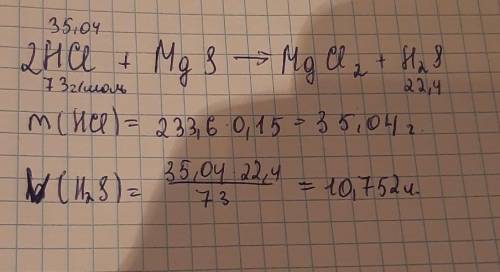 35,04
2HCl + MgS → MgCl₂ + H₂S
73г/моль 22,4
m(HCl) = 233,6·0,15 = 35,04г.
V(H₂S) = 35,04·22,4 / 73 = 10,752л.